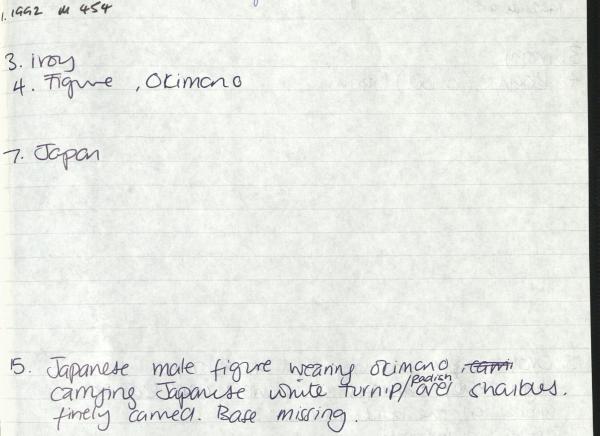 1. 1992 M 454
3. ivory
4. Figure , Okimono
7. Japan
15. Japanese male figure wearing okimono
carrying Japanese white turnip/Radish over shoulders.
finely carved. Base missing.